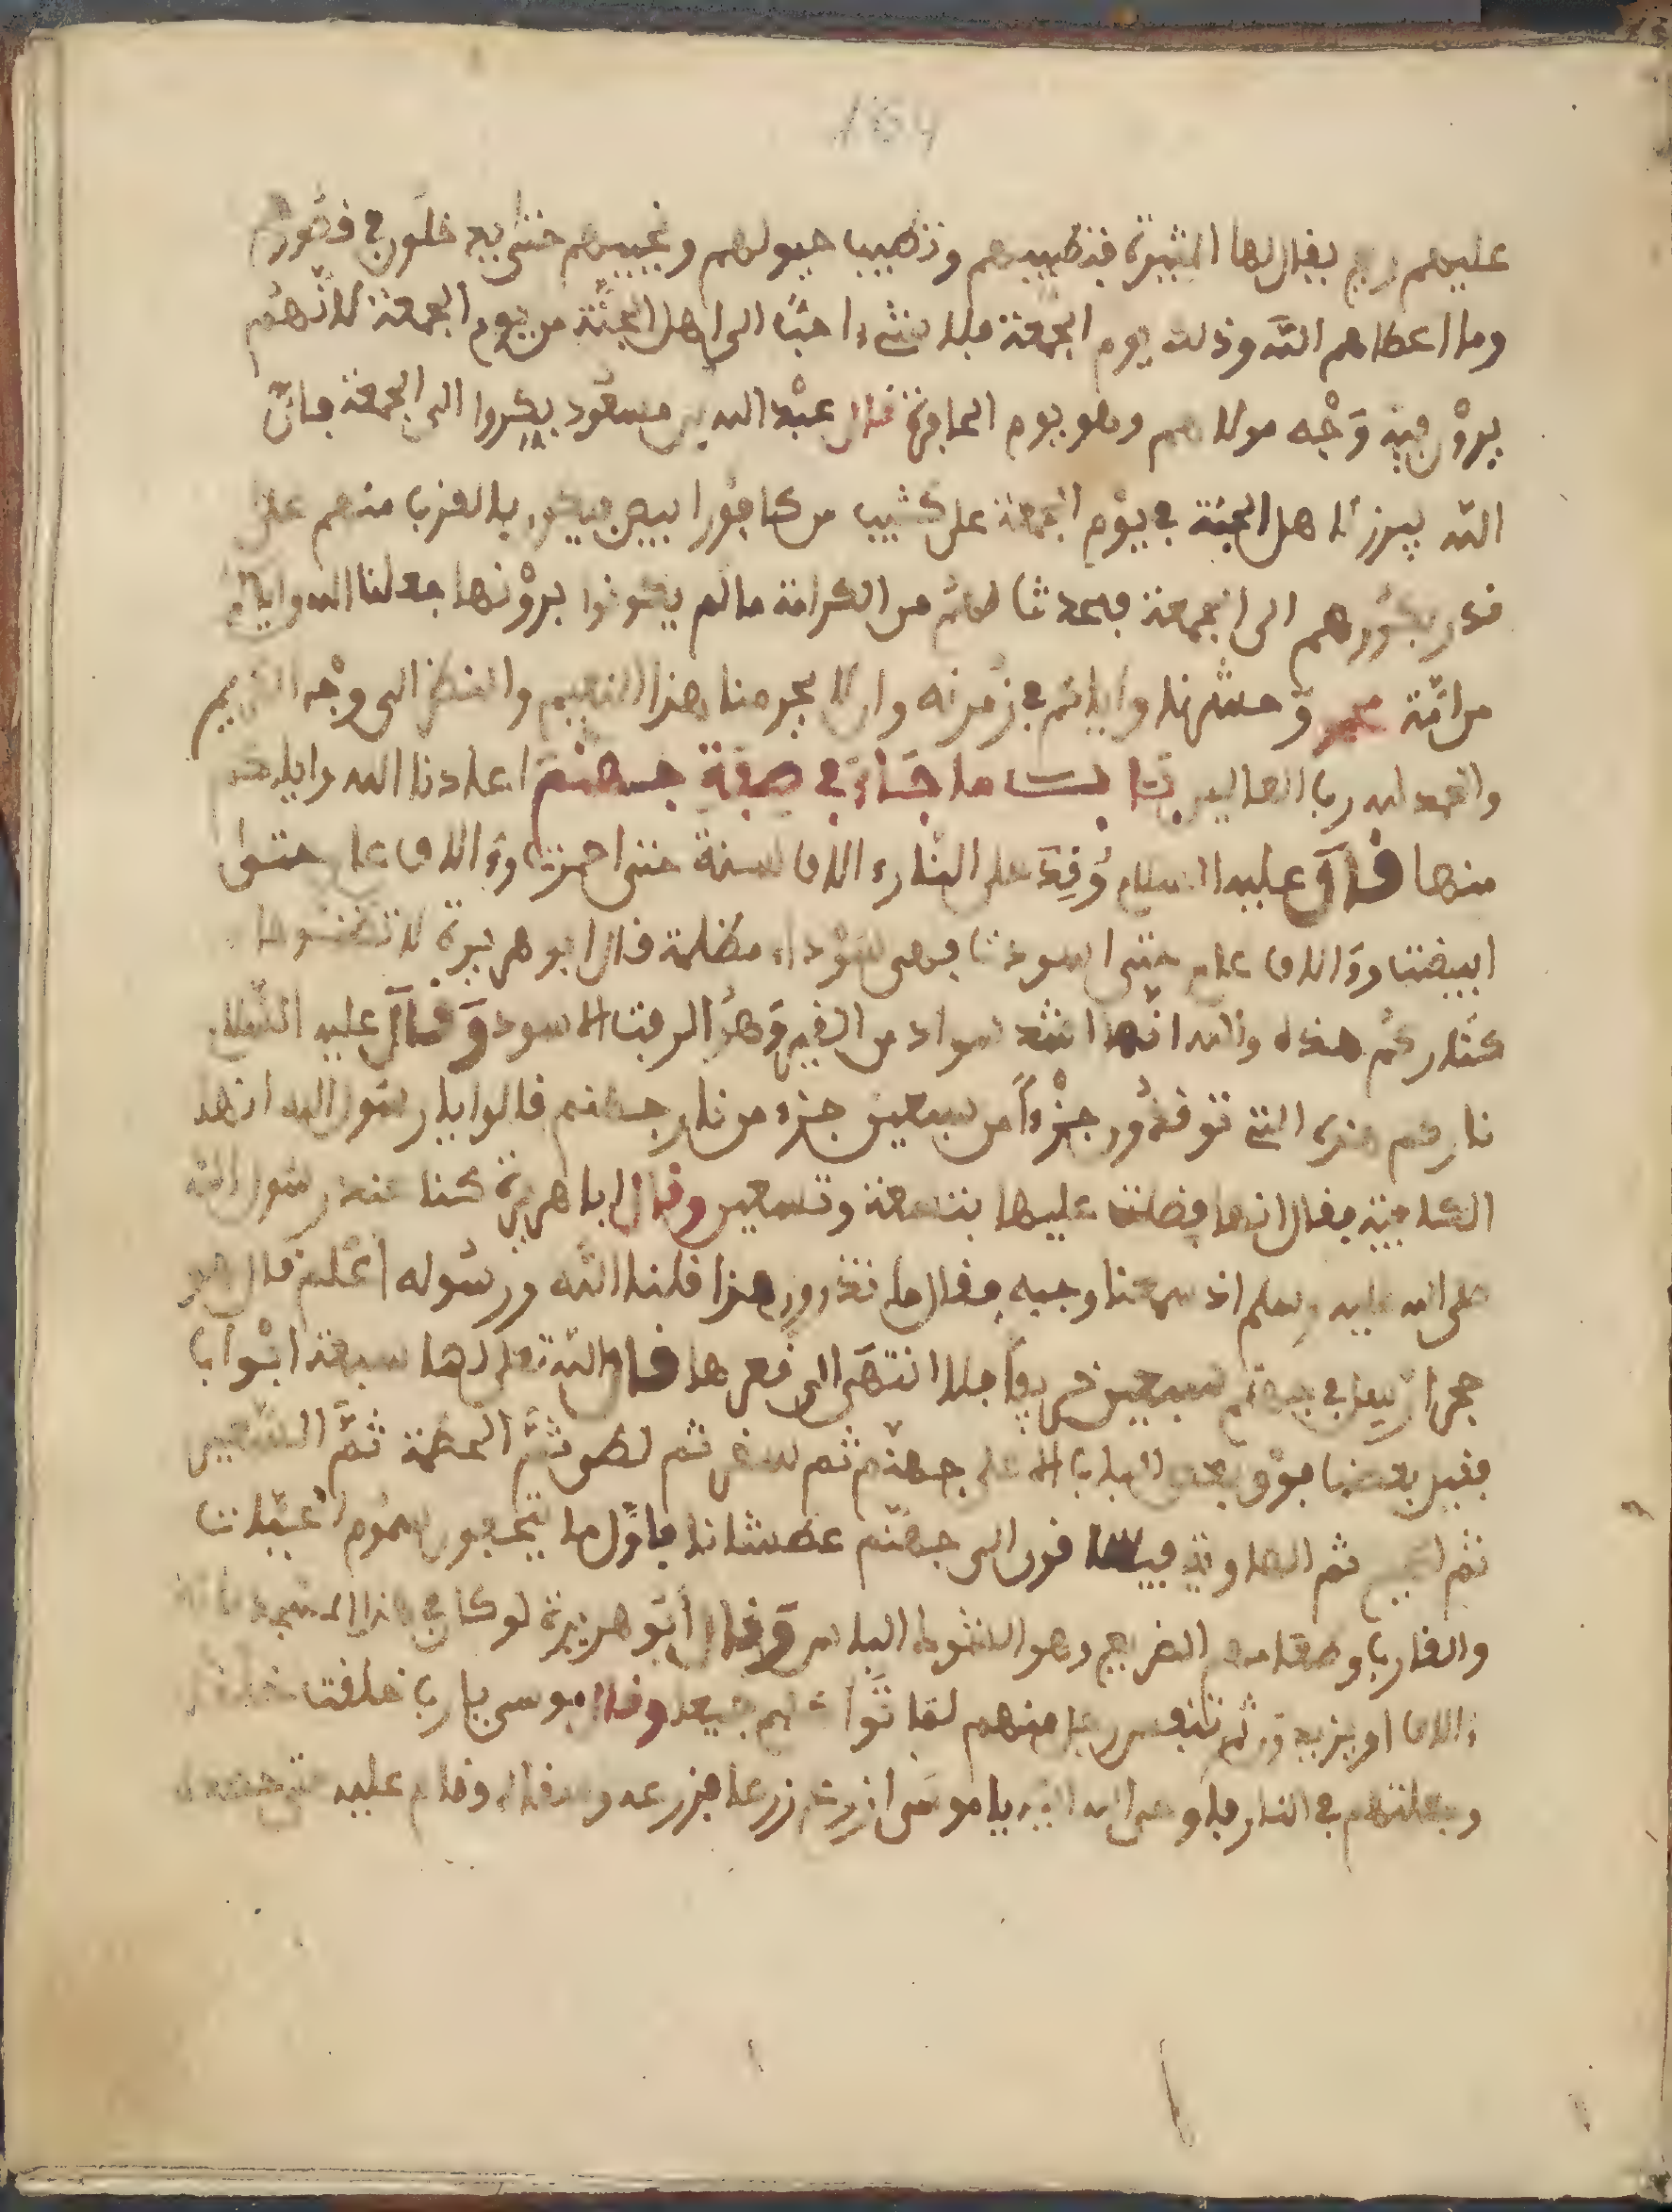 164
عليهم ريح يقال لها المثيرة فتطيبهم وتطيب خيولهم ونجيبهم حتى يدخلون في قصورهم
وما اعطاهم اللّه وذلك يوم الجمعة فلا شيء احبّ الى اهل الجنّة من يوم الجمعة لانّهم
يروْن فيه وَجْه مولاهم وهو يوم قال عبْد الله بن مسعُود بكروا الى الجمعة فانّ
اللّه يبرز لاهل الجنة في يوْم الجمعة على كثيب من كافور ابيض فيكون بالقرب منهم على
قدر بكورهم الى الجمعة فيحدث لهم من الكرامة ما لم يكونوا يروْنها جعلنا الله واياكم
من امّة محمد وَحشرنا واياكم في زُمرته وان لا يحرمنا هذا النعيم والنظر الى وجْه الكريم
والحمد لله رب العالمين باب ما جَاءَ في صفة جهنّم اعاذنا الله واياكم
منها قال عليه السلام وُقِدَ على النار ءالاف سنة حتى احمرّت وءالاف عام حتى
ابيضت وءالاف عام حتى اسودت فهي سَوْداء مظلمة قال ابو هريرة لا تظنوها
كناركُم هذه والله انّها اشد سواد من القير وَهو الزفت الاسود وَقال عليه السّلام
ناركم هذه التي توقدُون جزْءاً من سبعين جزء من نار جهنم قالوا يا رسُول الله انها
لكافية فقال انها فضلت عليها بتسعة وتسعين وقال ابا هريرة كنا عند رسُول الله
صلى الله عليه وسلم اذ سمعنا وجبه فقال ما تدرون هذا قلنا اللّه ورسُوله اعْلم قال هو
حجر ارسل في جهنم سبعين خريفا فلما انتهَى الى قعرها قال اللّه تعلى لها سبعة ابْواب
فقيل بعضها فوْق بعض الباب الاعلى جهنّم ثم سقر ثم لظى ثمّ الحطمة ثمّ السعير
ثم الجحيم ثم الهاوية فيساقون الى جهنّم عطشانا فاوّل ما يتحفون سموم
والعقارب وطعامهم الضريع وهو الشوك اليابس وَقال ابو هريرة لو كان في هذا المسجد
ءالاف او يزيدون ثم تنفس رجل منهم لماتوا كلهم جميعا وقال موسى يا رب خلقت
وجعلتهم في النار فاوحى الله اليه يا موسَى ازرع زرعا فزرعه وسقاه وقام عليه حتى حصده